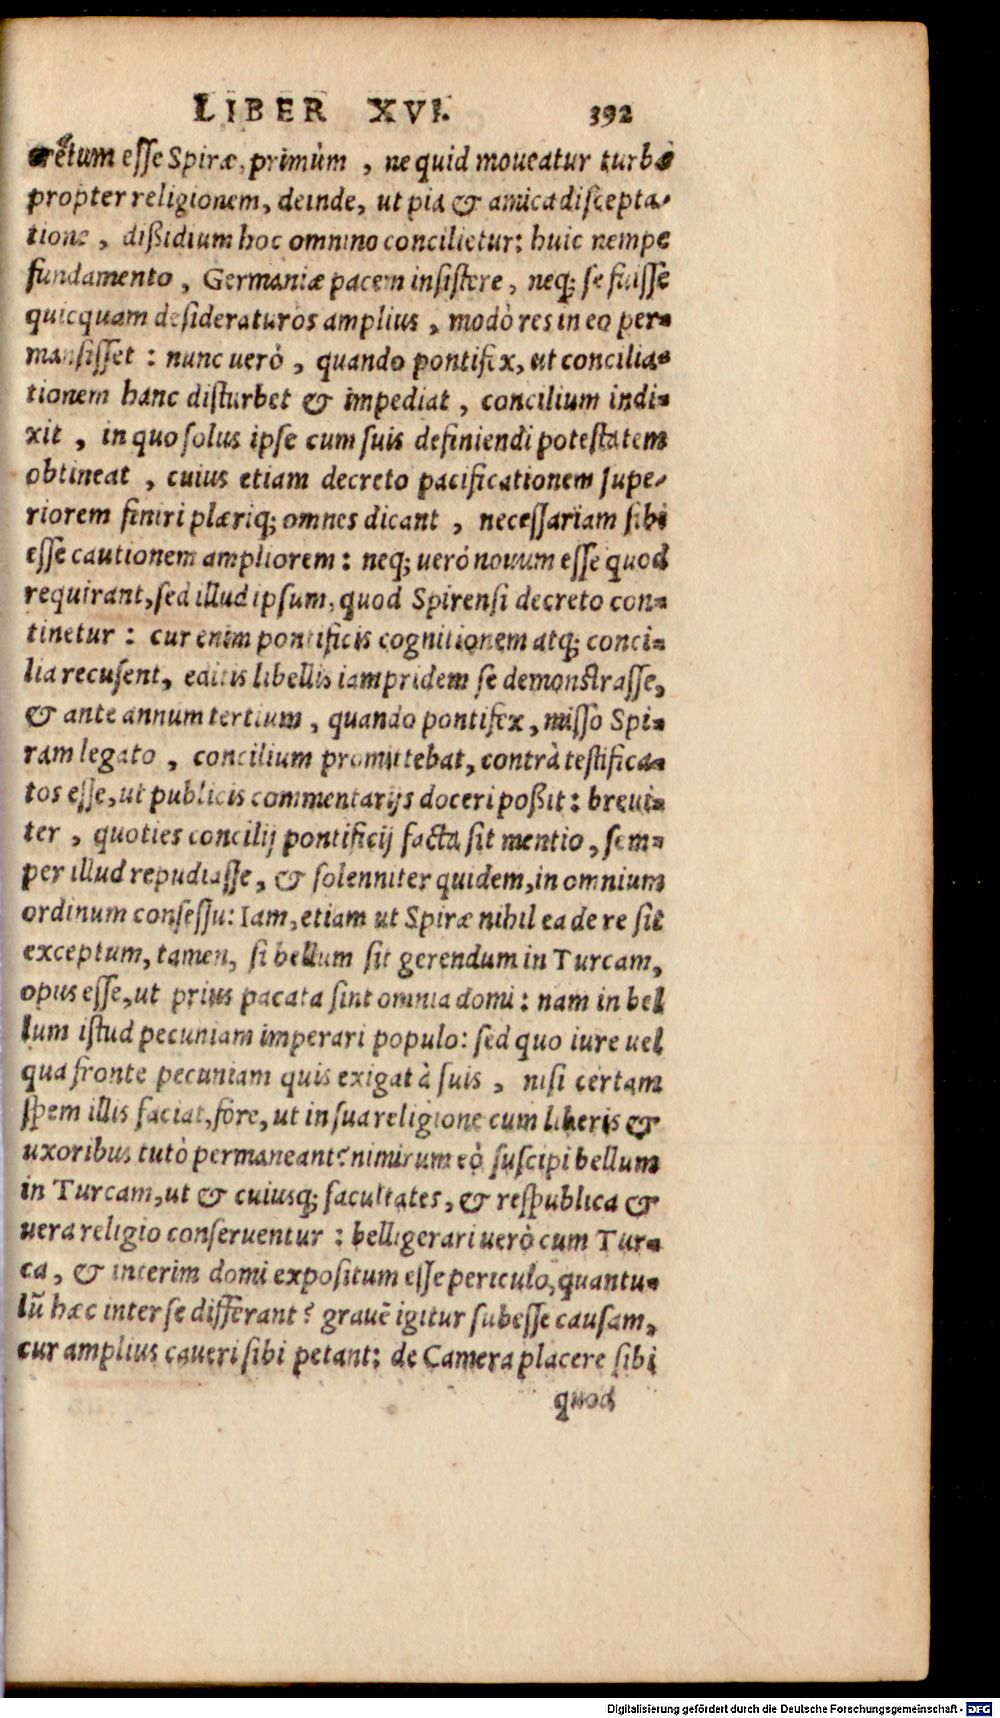 LIBER XVI. 392
cretum esse Spiræ, primùm , ne quid moueatur turbæ
propter religionem, deinde, ut pia & amica discepta-
tione , dißidium hoc omnino concilietur: huic nempe
fundamento , Germaniæ pacem insistere , neq; se fuisse
quicquam desideraturos amplius , modò res in eo per-
mansisset : nunc uerò , quando pontifex, ut concilia-
tionem hanc disturbet & impediat , concilium indi-
xit , in quo solus ipse cum suis definiendi potestatem
obtineat , cuius etiam decreto pacificationem supe-
riorem finiri plæriq; omnes dicant , necessariam sibi
esse cautionem ampliorem : neq; uerò nouum esse quod
requirant, sed illud ipsum, quod Spirensi decreto con-
tinetur : cur enim pontificis cognitionem atq; conci-
lia recusent, editis libellis iampridem se demonstrasse,
& ante annum tertium , quando pontifex , misso Spi-
ram legato , concilium promittebat, contrà testifica-
tos esse, ut publicis commentarijs doceri poßit : breui-
ter , quoties concilij pontificij facta sit mentio , sem-
per illud repudiasse, & solenniter quidem, in omnium
ordinum consessu: Iam, etiam ut Spiræ nihil ea de re sit
exceptum, tamen, si bellum sit gerendum in Turcam,
opus esse, ut prius pacata sint omnia domi : nam in bel
lum istud pecuniam imperari populo: sed quo iure uel
qua fronte pecuniam quis exigat à suis , nisi certam
spem illis faciat, fore, ut in sua religione cum liberis &
uxoribus tutò permaneant? nimirum eò suscipi bellum
in Turcam, ut & cuiusq; facultates, & respublica &
uera religio conseruentur : belligerari uerò cum Tur-
ca, & interim domi expositum esse periculo, quantu-
lũ hæc inter se differant ? grauẽ igitur subesse causam,
cur amplius caueri sibi petant: de Camera placere sibi
quod
Digitalisierung gefördert durch die Deutsche Forschungsgemeinschaft - DFG